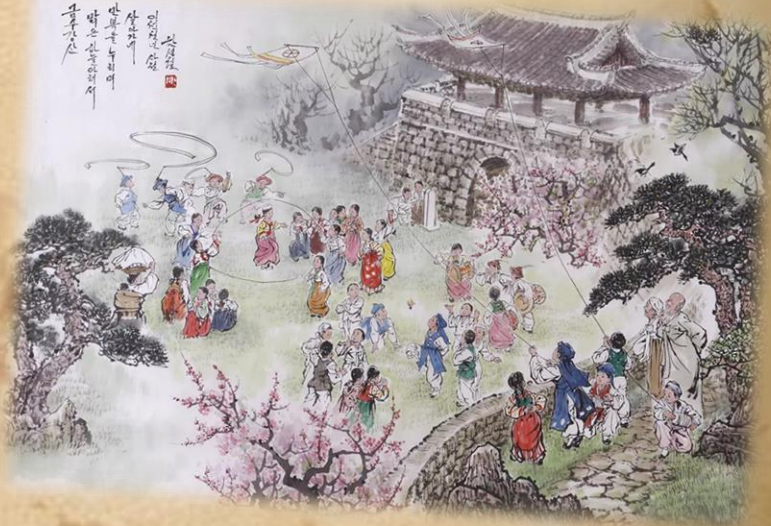 금수강산
맑은 하늘아래서
만복을 누리며
살아가네